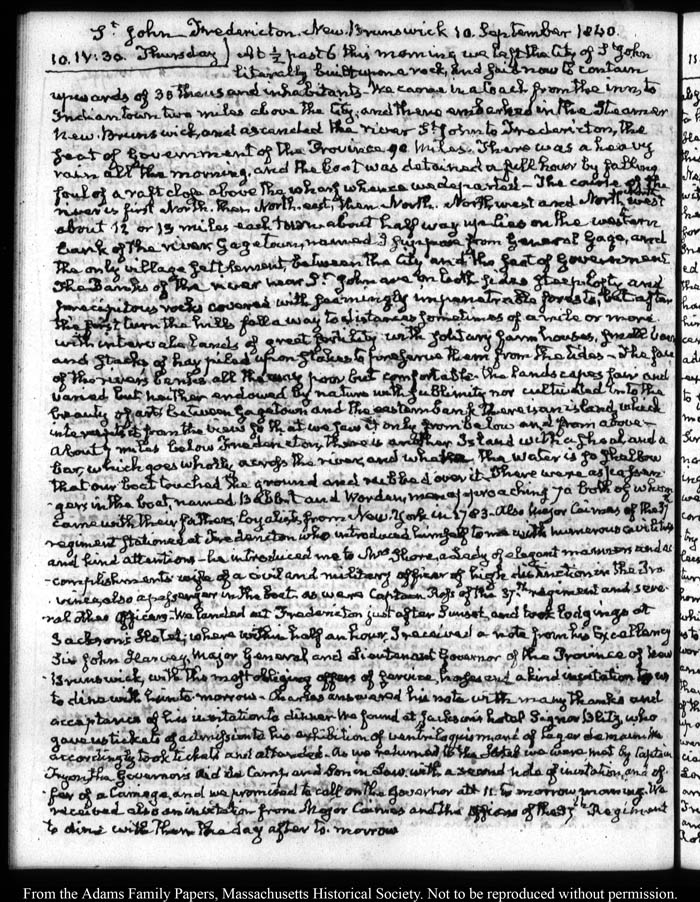 St John Fredericton. New. Brunswick 10. September 1840.
10. IV:30. Thursday) At ½ past 6 this morning we left the City of St John
literally built upon a rock, and said now to contain
upwards of 30 thousand inhabitants. We came in a Coach from the inn, to
Indian town two miles above the City, and there embarked in the Steamer
New. Brunswick, and ascended the river St John to Fredericton, the
seat of Government of the Province 90 Miles. There was a heavy
rain all the morning, and the boat was detained a full hour by falling
foul of a raft close above the wharf whence we departed — The course of the
river is first North, then North. east, then North. North west and North west
about 12 or 15 miles each turn about half way up lies on the western
bank of the river Gagetown, named I suppose from General Gage, and
the only village settlement, between the City and the seat of Government
The Banks of the river near St John are on both sides steep lofty and
precipitous rocks covered with seemingly impenetrable forests, but after
the first turn the hills fall away to distances sometimes of a mile or more
with intervale lands of great fertility with solitary farm houses, small barns
and stacks of hay piled upon stakes to preserve them from the tides — The face
of the rivers banks all the way poor but comfortable. the landscapes fair and
varied but neither endowed by nature with sublimity nor cultivated into the
beauty of art. between Gagetown and the eastern bank there is an island, which
intercepts it from the view so that we saw it only from below and from above —
About 7 miles below Fredericton, there is another Island with a shoal and a
bar, which goes wholly across the river, and the water is so shallow
that our boat touched the ground and rubbed over it. There were as passen-
gers in the boat, named Babbit and Worden, men approaching 70 both of whom
came with their fathers, loyalists from New York in 1783. Also Major Cairnes of the 37
regiment stationed at Fredericton who introduced himself to me with numerous civilities
and kind attentions — he introduced me to Mrs Shore, a Lady of elegant manners and ac-
-complishments wife of a civil and military officer of high distinction in the Pro
vince, also a passenger in the boat. as were Captain Ross of the 37th regiment and seve-
ral other Officers. We landed at Fredericton just after Sunset, and took lodgings at
Jackson's Hotel; where within half an hour, I received a note from his Excellency
Sir John Harvey, Major General and Lieutenant Governor of the Province of New
Brunswick, with the most obliging offers of service, and a kind invitation to us
to dine with him to-morrow. Charles answered his note with many thanks and
acceptance of his invitation to dinner. We found at Jackson's hotel Signor Blitz, who
gave us tickets of admission to his exhibition of ventriloquism and of leger demain. We
accordingly took tickets and attended. As we returned to the Hotel we were met by Captain
Tryon the Governor's Aid de Camp and Son in Law, with a second note of invitation, and of-
fer of a Carriage, and we promised to call on the Governor att 11. to morrow morning. We
received also an invitation from Major Cairnes and the officers of the 37th Regiment
to dine with them the day after to-morrow
From the Adams Family Papers, Massachusetts Historical Society. Not to be reproduced without permission.